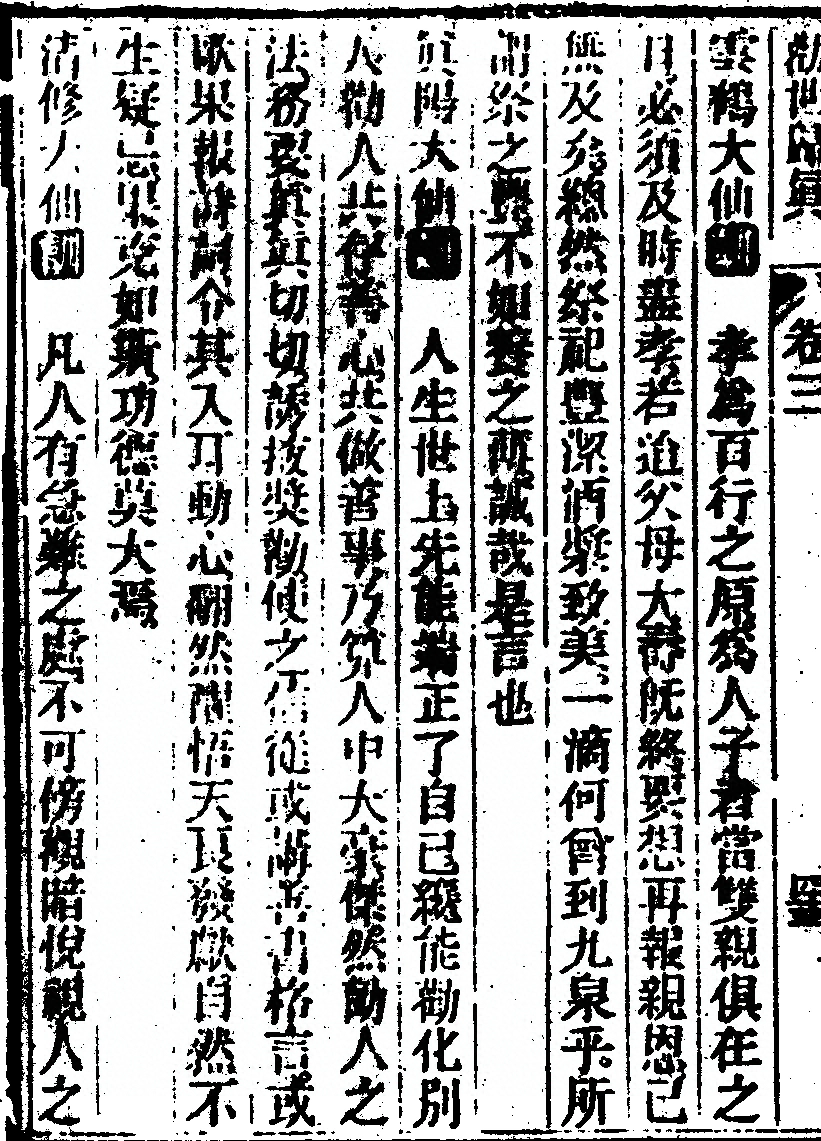 勸世歸眞　卷三
雲鶴大仙訓　孝爲百行之原爲人子者當雙親俱在之
日必須及時盡孝若迨父母大壽旣終與想再報親恩已
無及矣總然祭祀豐潔酒漿致美一滴何曾到九泉乎所
謂祭之豐不如養之薄誠哉是言也
眞陽大仙訓　人生世上先能端正了自己纔能勸化別
人勸人共存善心共做善事乃算人中大豪傑然勸人之
法務要眞眞切切誘掖奬勸使之信從或講善書格言或
歌果報詩詞令其入耳動心翻然醒悟天良發歇自然不
生疑忌果克如斯功德莫大焉
清修大仙訓　凡人有急難之處不可傍觀暗悅親人之